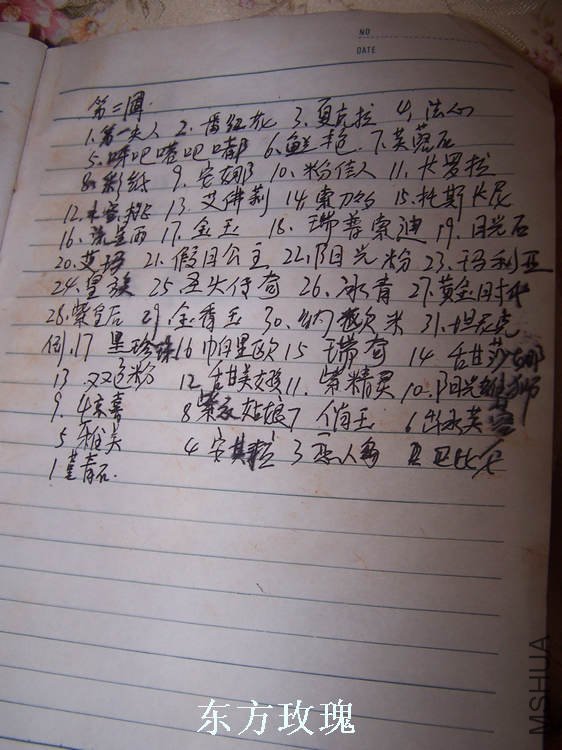 NO
DATE
第二圃
1.第一夫人 2.香红龙 3.夏克拉 4.
5.哔吧噻吧嘟 6.鲜艳 7.芙蓉石
8.彩纸 9.安娜 10.粉佳人 11.卡罗拉
12. 13.艾佛莉 14.索力多 15.托斯卡尼
16.流星雨 17.金玉 18.瑞普索迪 19.日光石
20.艾玛 21.假日公主 22.阳光粉 23.玛利亚
24.皇族 25. 传奇 26.冰青 27.黄金时代
28.紫皇后 29.金香玉 30.纳欧米 31.坦尼克
倒.17 黑珍珠 16 15 瑞奇 14 甜莎娜
13 双色粉 12 甜美 11.紫精灵 10.阳光狮
9. 8 紫衣姑娘 7 俏玉 6 出水芙蓉
5 4 安其拉 3 恋人 巴比伦
1 蓝青石.
东方玫瑰
MSHUA